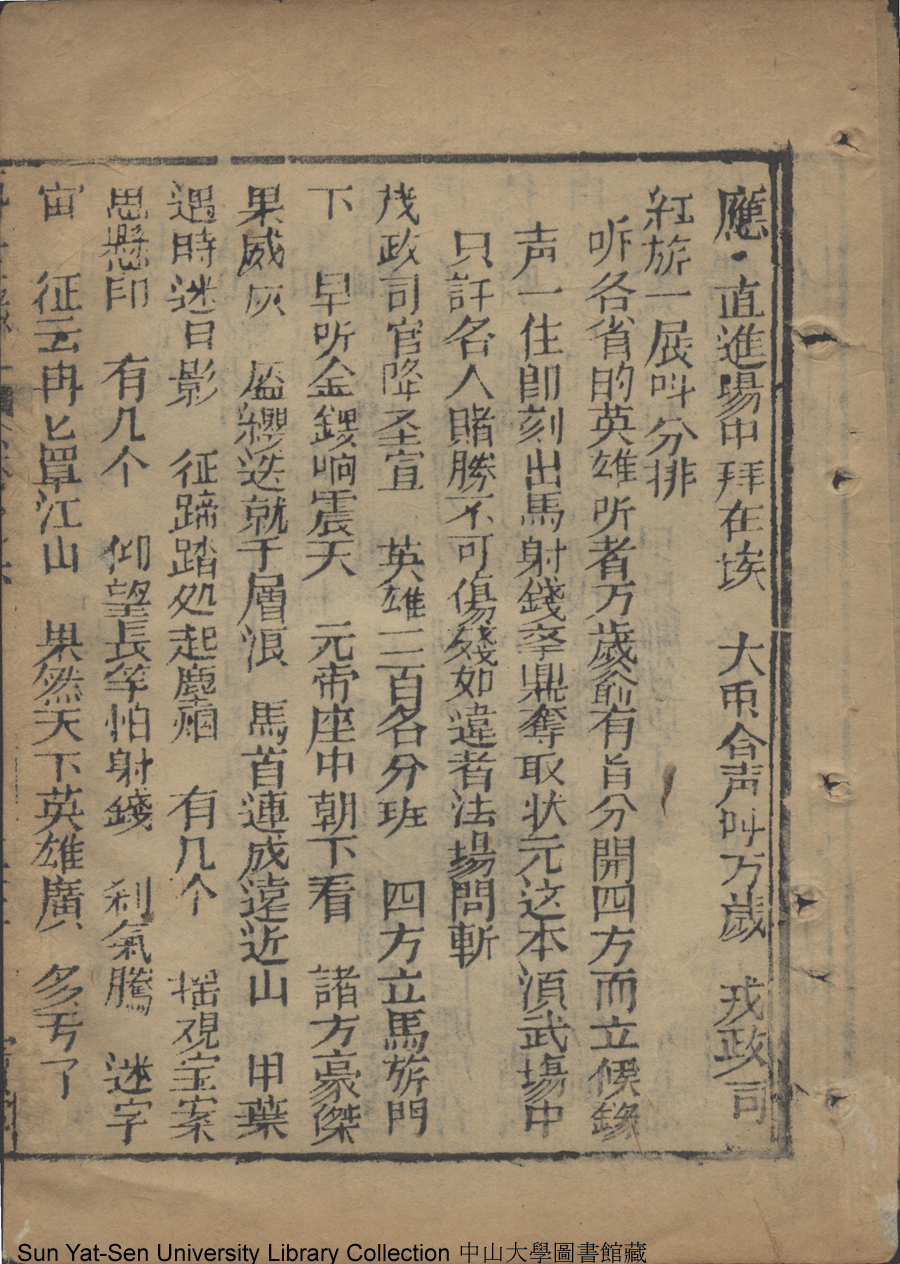 應・直進場中拜在埃　大而合声叫万歲　戎政司
紅旂一展叫分排
听各省的英雄听者万歲爺有旨分開四方而立候鑼
声一住即刻出馬射錢拏鼎奪取状元这本湏武場中
只許各人賭勝不可傷殘如違者法場問斬
戎政司官降圣宣　英雄三百各分班　四方立馬旂門
下　早听金鑼响震天　元帝座中朝下看　諸方豪傑
果威灰　盔纓迭就千層浪　馬首連成遠近山　甲葉
遇時迷日影　征蹄踏処起塵烟　有几个　揺观宝案
思懸印　有几个　仰望長竿怕射錢　刹氣騰　迷宇
宙　征云冉匕罩江山　果然天下英雄廣　多亐了
Sun Yat-Sen University Library Collection 中山大學圖書館藏